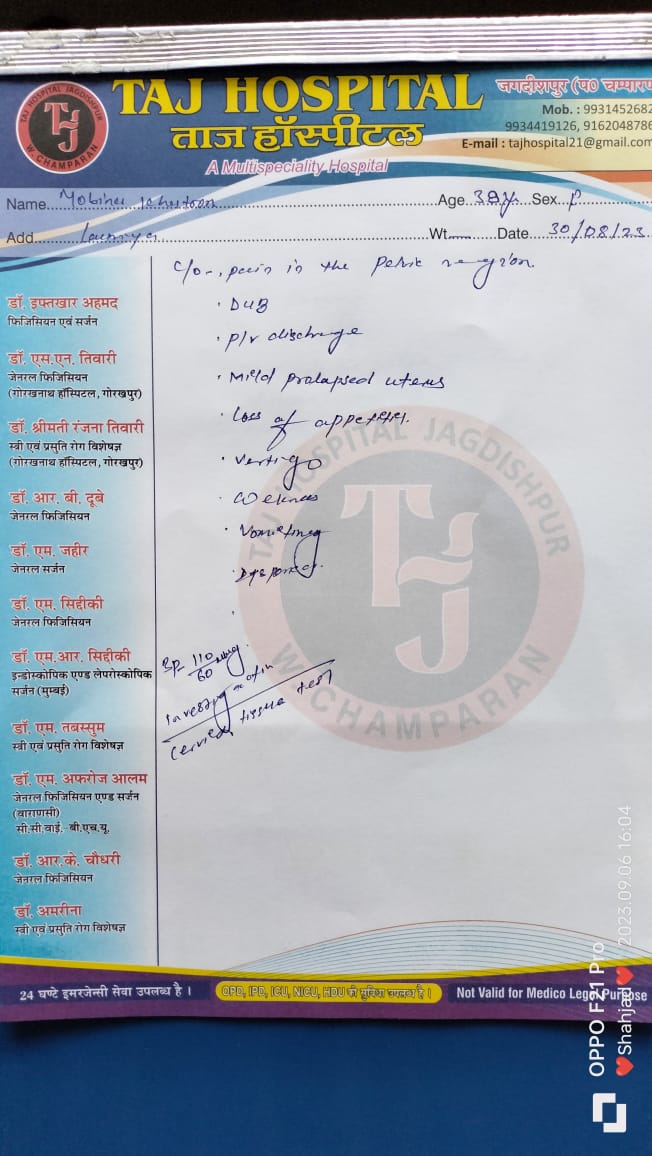 TAJ HOSPITAL JAGDISHPUR
W. CHAMPARAN
TJ
TAJ HOSPITAL
ताज हॉस्पीटल
A Multispeciality Hospital
जगदीशपुर (प० चम्पारण
Mob. : 9931452682
9934419126, 9162048786
E-mail : tajhospital21@gmail.com
Name
Age 39y Sex F
Add Wt. Date 30/08/23
C/o-, pain in the Pelvic
डॉ. इफ्तखार अहमद
फिजिसियन एवं सर्जन
डॉ. एस.एन. तिवारी
जेनरल फिजिसियन
(गोरखनाथ हॉस्पिटल, गोरखपुर)
डॉ. श्रीमती रंजना तिवारी
स्त्री एवं प्रसुति रोग विशेषज्ञ
(गोरखनाथ हॉस्पिटल, गोरखपुर)
डॉ. आर. बी. दूबे
जेनरल फिजिसियन
डॉ. एम. जहीर
जेनरल सर्जन
डॉ. एम. सिद्दीकी
जेनरल फिजिसियन
डॉ. एम.आर. सिद्दीकी
इन्डोस्कोपिक एण्ड लेपरोस्कोपिक
सर्जन (मुम्बई)
डॉ. एम. तबस्सुम
स्त्री एवं प्रसुति रोग विशेषज्ञ
डॉ. एम. अफरोज आलम
जेनरल फिजिसियन एण्ड सर्जन
(वाराणसी)
सी.सी.वाई.- बी.एच.यू.
डॉ. आर.के. चौधरी
जेनरल फिजिसियन
डॉ. अमरीना
स्त्री एवं प्रसुति रोग विशेषज्ञ
· DUB
· P/V discharge
· Mild prolapsed uterus
· Loss of
· Vertigo
·
· Vomiting
·
BP- 110/60 mmHg.
tissue test
TAJ HOSPITAL JAGDISHPUR
W. CHAMPARAN
TJ
24 घण्टे इमरजेन्सी सेवा उपलब्ध है ।
OPD, IPD, ICU, NICU, HDU की सुविधा उपलब्ध है ।
Not Valid for Medico Legal Purpose
OPPO F21 Pro
❤️Shahjad❤️ 2023.09.06 16:04